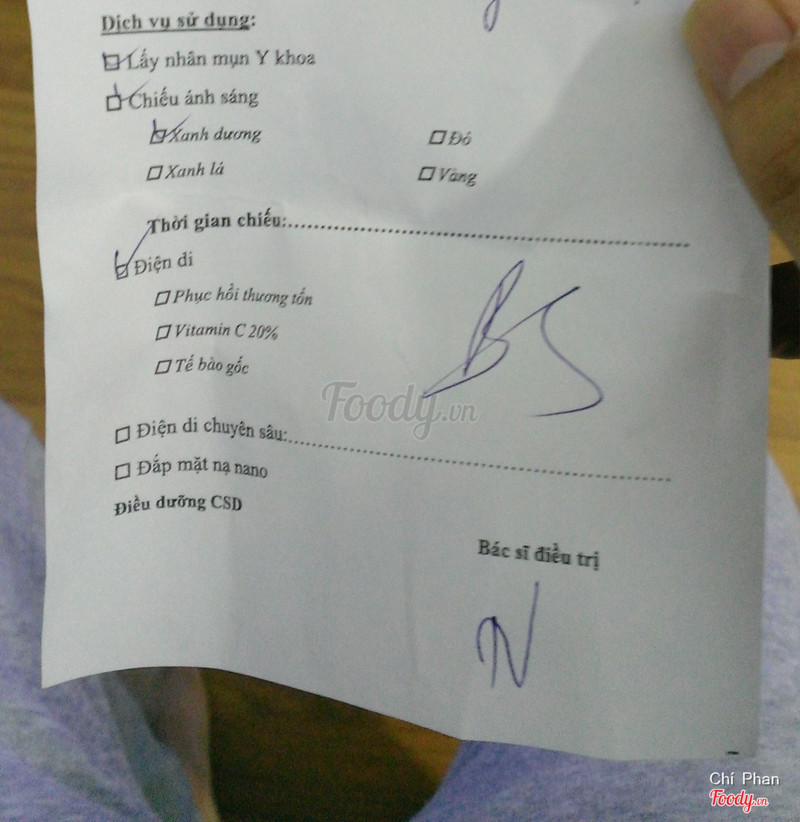 Dịch vụ sử dụng:
Lấy nhân mụn Y khoa
Chiếu ánh sáng
Xanh dương
Đỏ
Xanh lá
Vàng
Thời gian chiếu:
Điện di
Phục hồi thương tổn
Vitamin C 20%
Tế bào gốc
BS
Foody.vn
Điện di chuyên sâu:
Đắp mặt nạ nano
Điều dưỡng CSD
Bác sĩ điều trị
Chí Phan
Foody.vn